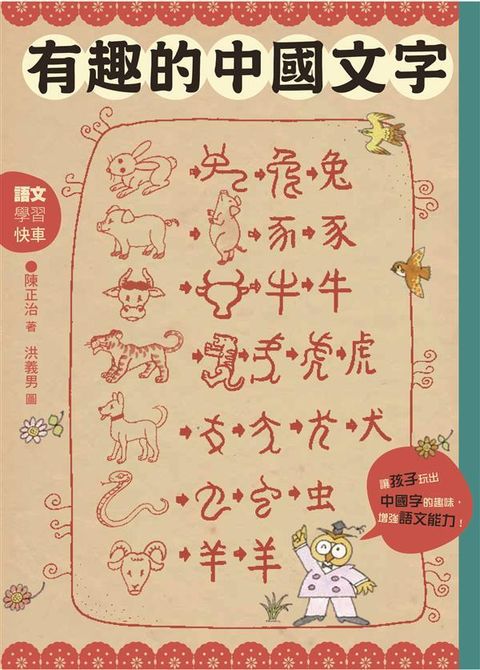 有趣的中國文字
語文
學習
快車
●陳正治 著 洪義男 圖
兔
豕
牛 牛
虎 虎
犬
虫
羊 羊
讓孩子玩出
中國字的趣味，
增強語文能力！